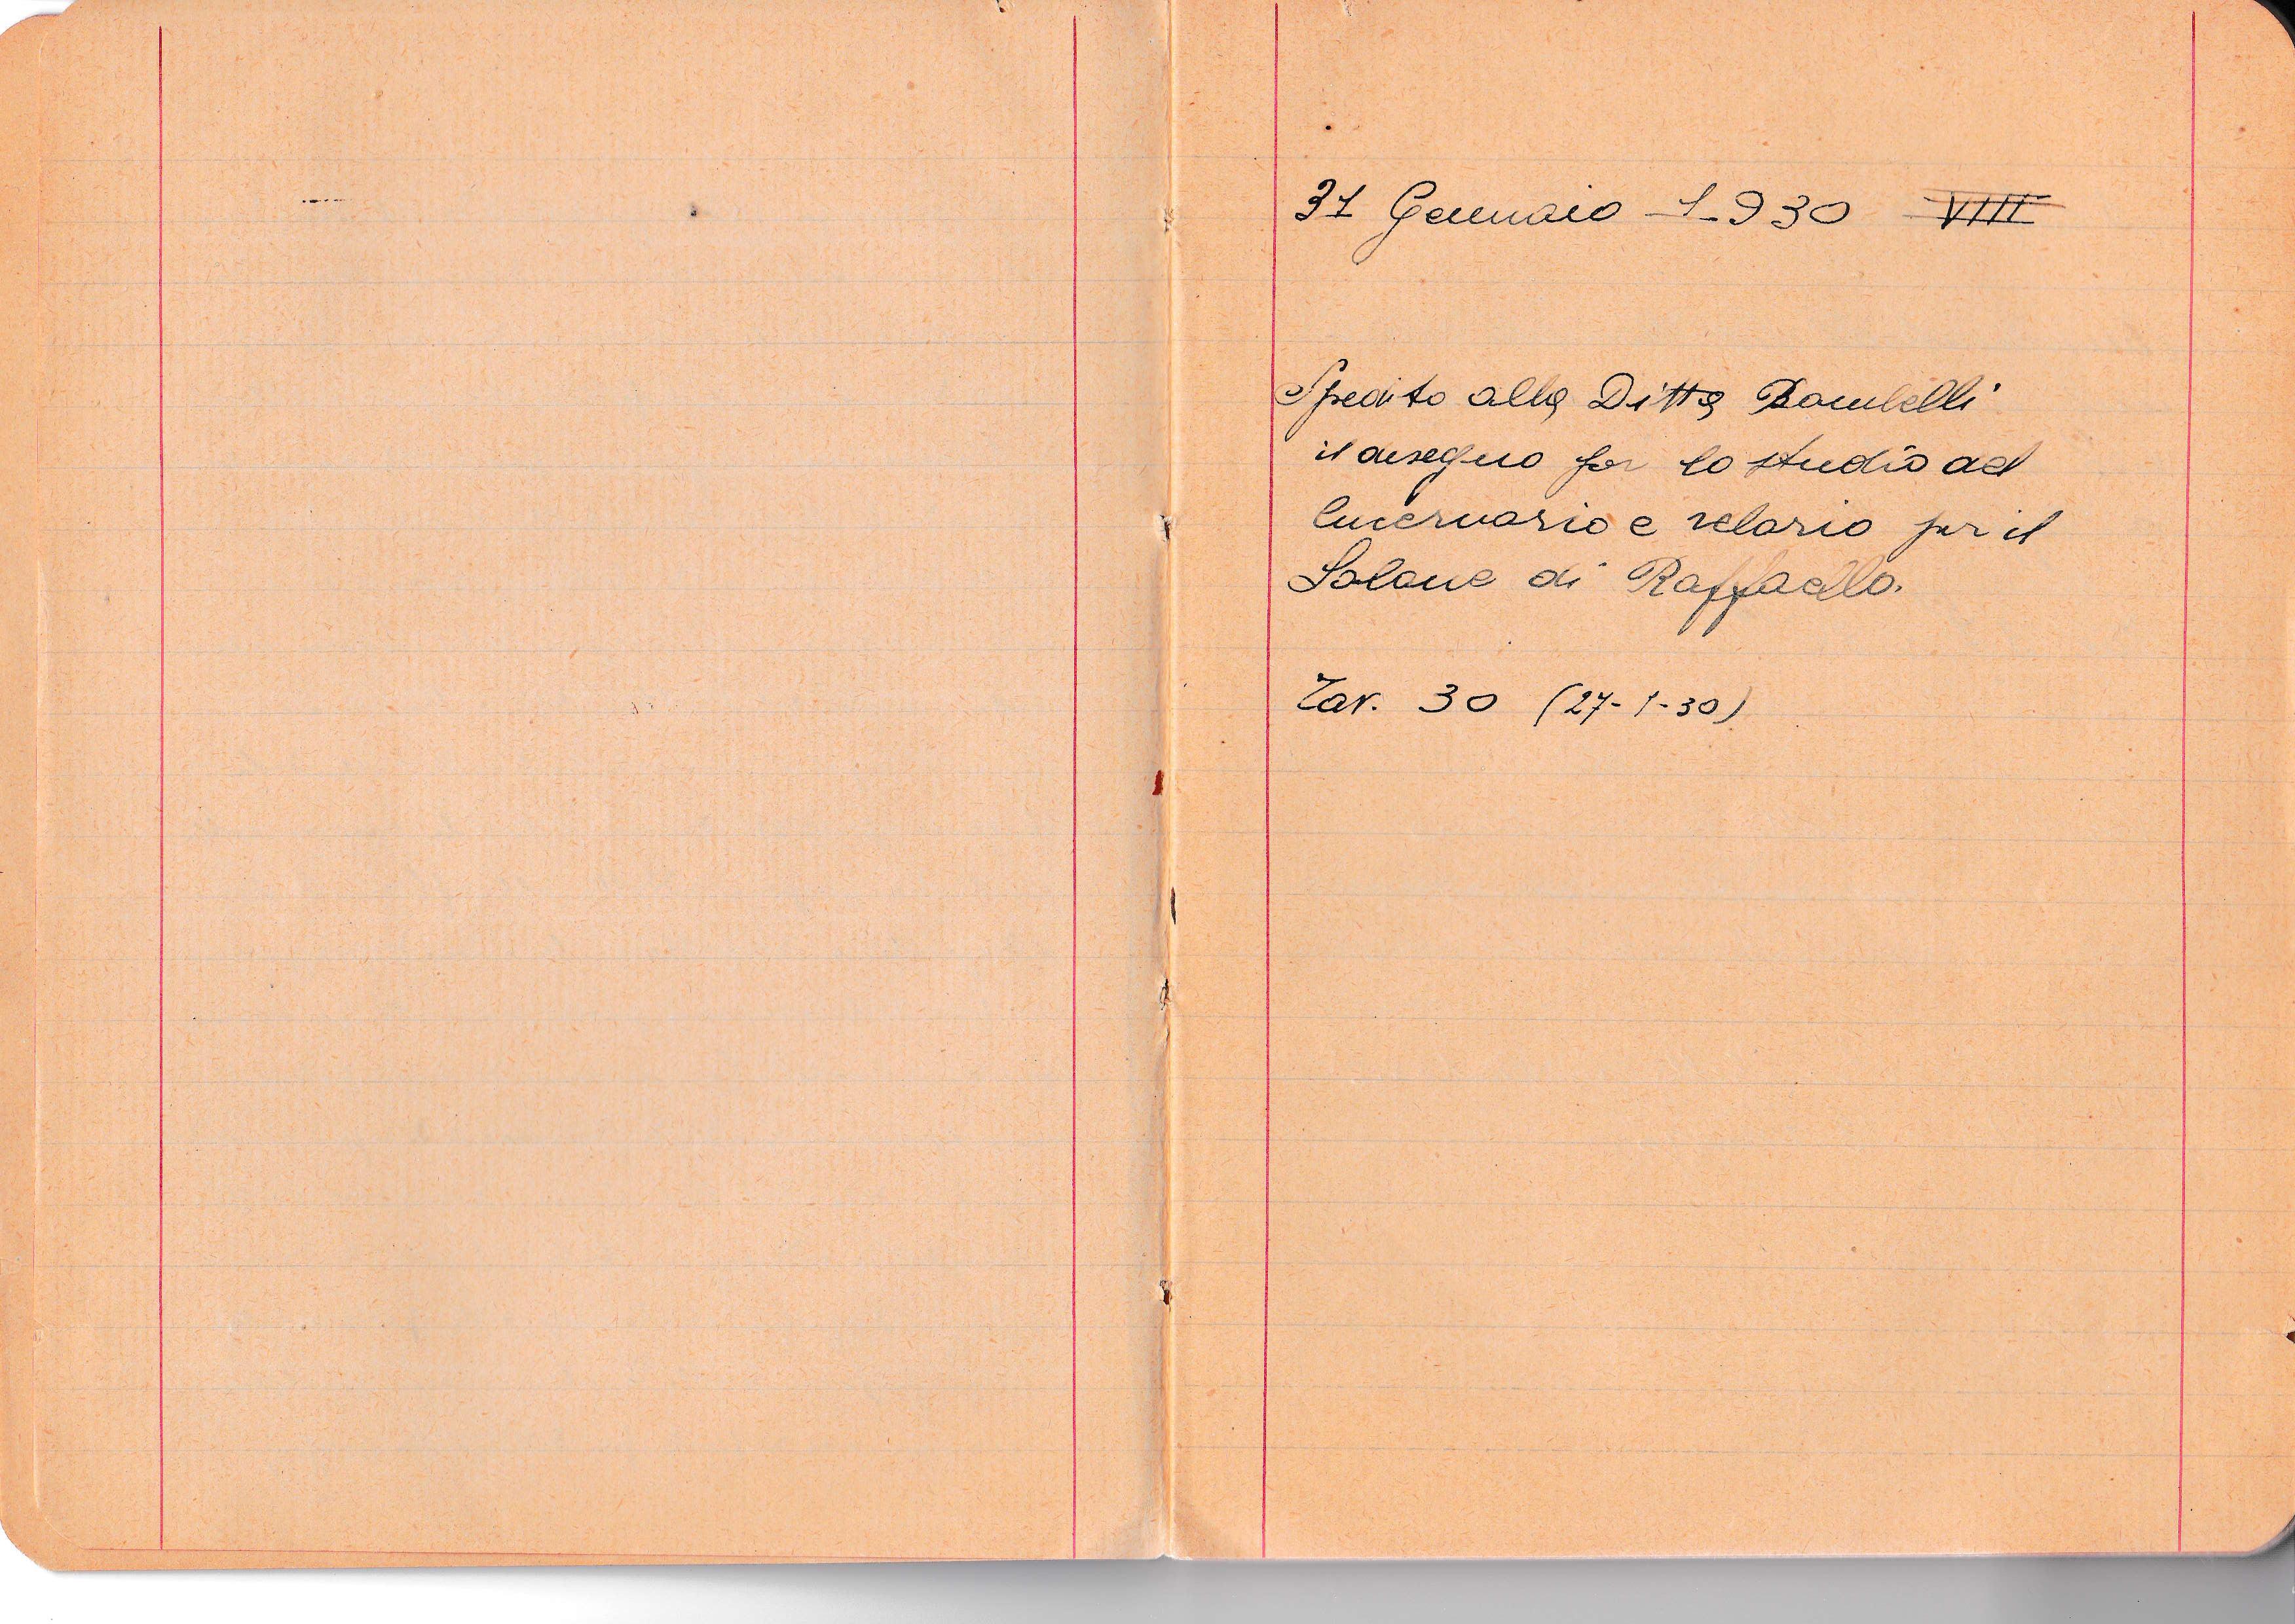 31 Gennaio 1930 VIII
Spedito alla Ditta Bombelli
il disegno per lo studio del
lucernario e velario per il
Salone di Raffaello.
Tav. 30 (27-1-30)